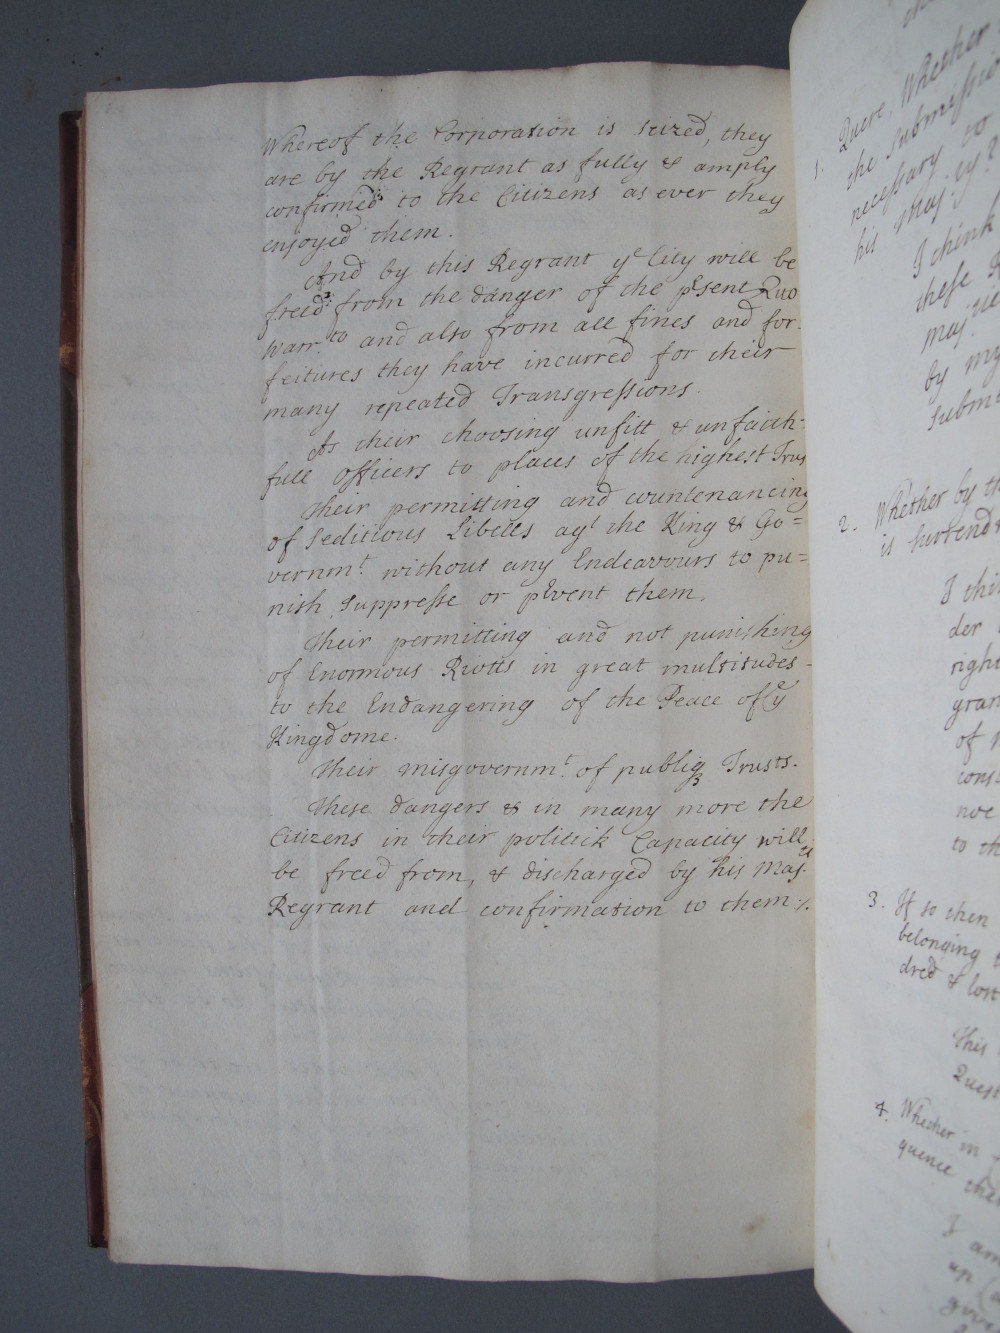 Whereof the Corporation is seized, they
are by the Regrant as fully & amply
confirmed to the Citizens as ever they
enjoyed them.
And by this Regrant ye City will be
freed from the danger of the psent Quo
Warr.to and also from all fines and for-
feitures they have incurred for their
many repeated Transgressions.
As their choosing unfitt & unfaith-
full Officers to places of the highest Trust
Their permitting and countenancing
of Seditious Libells agt the King & Go=
vernmt. without any Endeavours to pu=
nish, suppresse or pvent them.
Their permitting and not punishing
of Enormous Riotts in great multitudes -
to the Endangering of the Peace of ye
Kingdome.
Their misgovernmt. of publiq Trusts.
These dangers & in many more the
Citizens in their politick Capacity will
be freed from, & discharged by his Maj.ts
Regrant and confirmation to them ⁒
1. Quere, Whether
the submissio
necessary to
his Maj.ty?
I think
these
Maj.tie
by my
submi
2. Whether by th
is surrend
I thi
der
right
gran
of
cons
not
to th
3. If so then
belonging
dred & lost
This
Quest
4. Whether in
quence the
I am
up
give